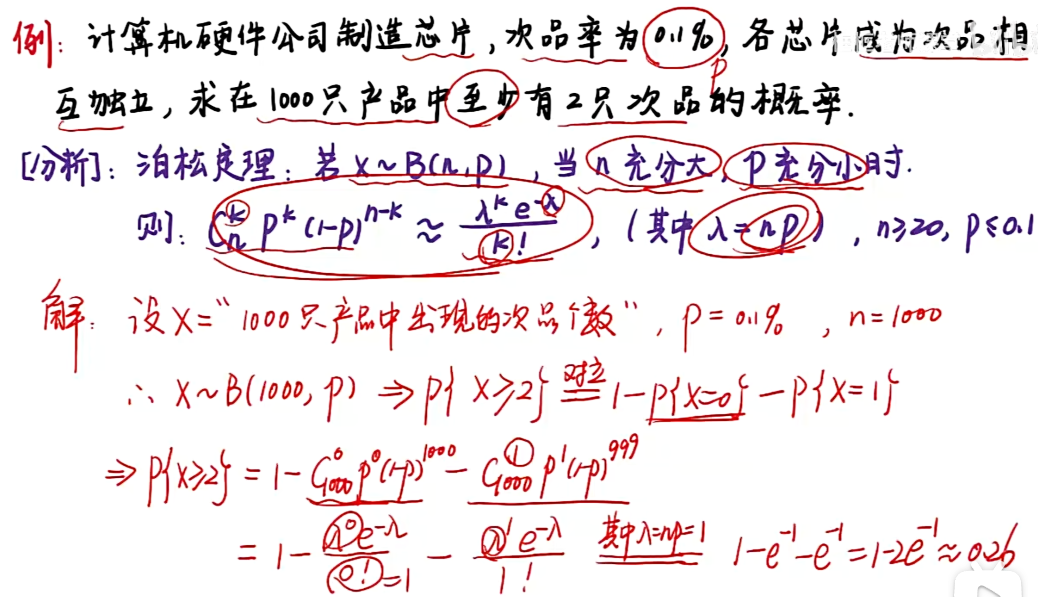 例: 计算机硬件公司制造芯片,次品率为0.1%,各芯片成为次品相
互独立,求在1000只产品中至少有2只次品的概率.
p
[分析]: 泊松定理: 若X~B(n,p), 当n充分大, p充分小时.
则: C_n^k p^k (1-p)^{n-k} ≈ \frac{λ^k e^{-λ}}{k!}, (其中λ=np), n≥20, p≤0.1
解: 设X="1000只产品中出现的次品个数", p=0.1%, n=1000
∴ X~B(1000, p) ⇒ P{X≥2} \overset{对立}{=} 1-P{X=0}-P{X=1}
⇒ P{X≥2} = 1-C_{1000}^0 p^0 (1-p)^{1000} - C_{1000}^1 p^1 (1-p)^{999}
= 1-\frac{λ^0 e^{-λ}}{0!=1} - \frac{λ^1 e^{-λ}}{1!} \overset{其中λ=np=1}{=} 1-e^{-1}-e^{-1}=1-2e^{-1}≈0.26